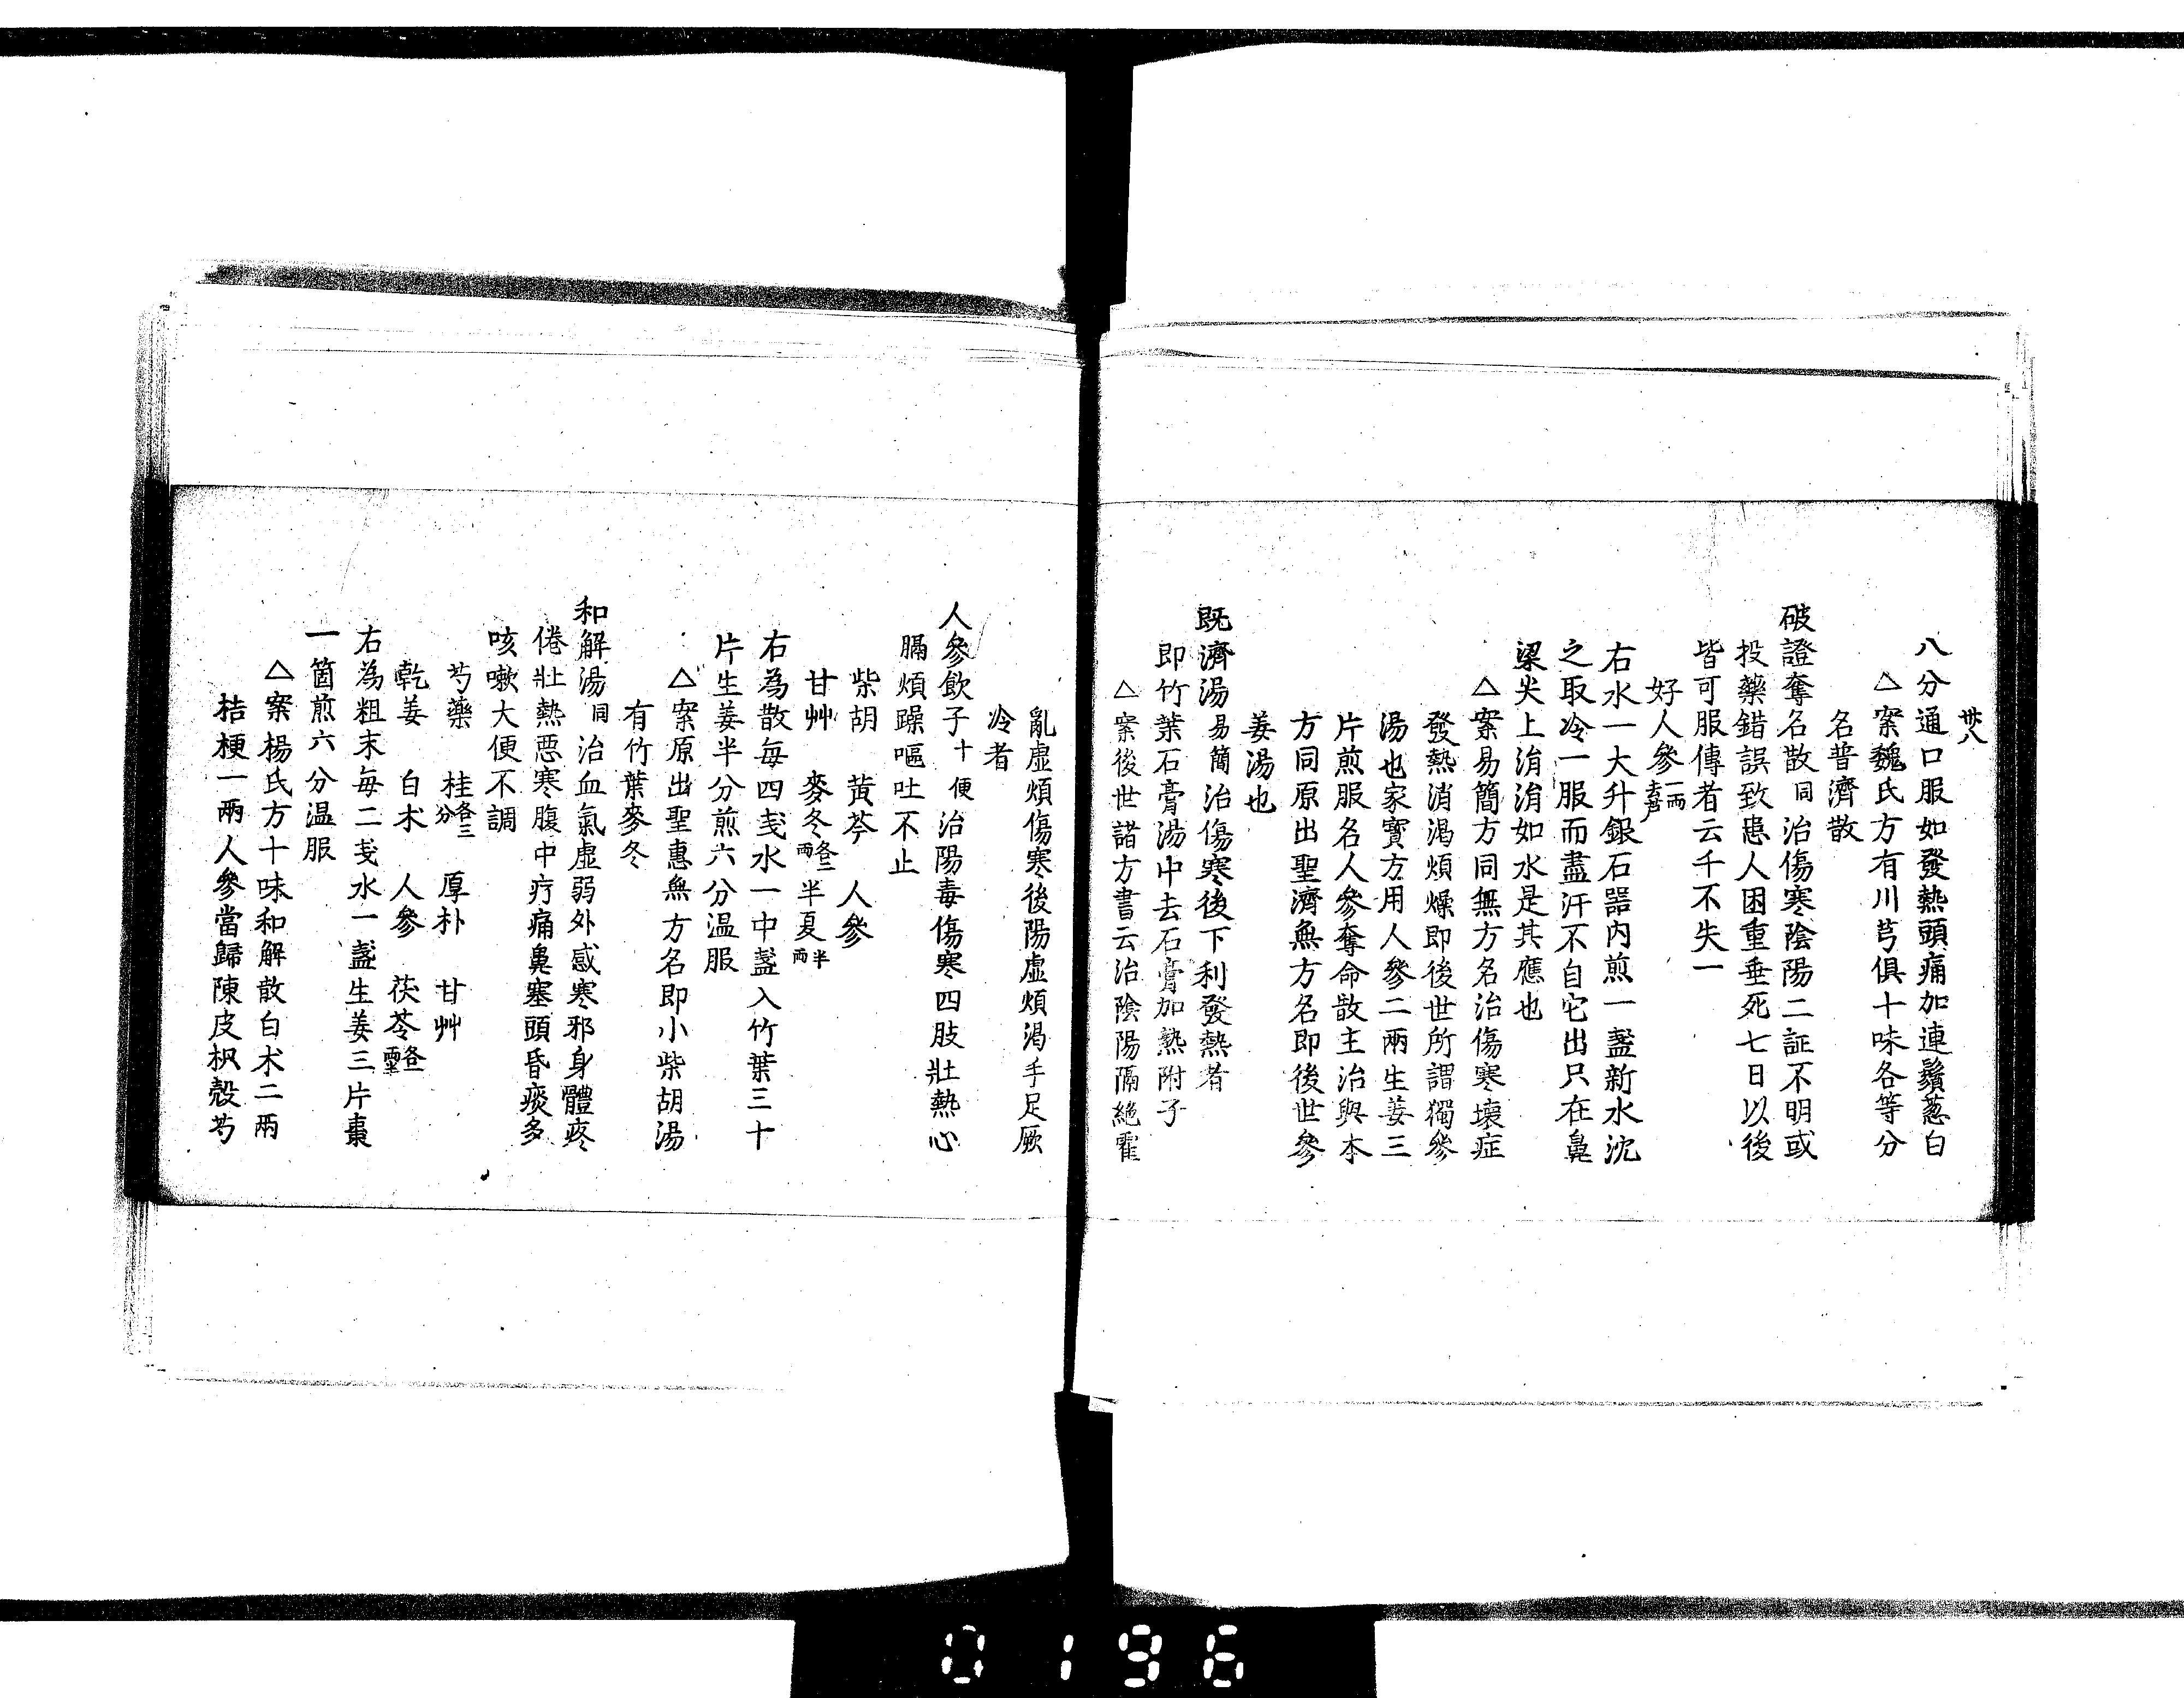 卅八
八分通口服如發熱頭痛加連鬚葱白
△案魏氏方有川芎俱十味各等分
名普濟散
破證奪名散同治傷寒陰陽二証不明或
投藥錯誤致患人困重垂死七日以後
皆可服傳者云千不失一
好人參一兩去芦
右水一大升銀石器内煎一盞新水沈
之取冷一服而盡汗不自它出只在鼻
梁尖上涓涓如水是其應也
△案易簡方同無方名治傷寒壞症
發熱消渴煩燥即後世所謂獨參
湯也家寳方用人參二兩生姜三
片煎服名人參奪命散主治與本
方同原出聖濟無方名即後世參
姜湯也
既濟湯易簡治傷寒後下利發熱者
即竹葉石膏湯中去石膏加熟附子
△案後世諸方書云治陰陽隔絶霍
亂虚煩傷寒後陽虚煩渴手足厥
冷者
人參飲子十便治陽毒傷寒四肢壯熱心
膈煩躁嘔吐不止
柴胡 黃芩 人參
甘艸 麥冬各一兩 半夏半兩
右為散每四戔水一中盞入竹葉三十
片生姜半分煎六分温服
△案原出聖惠無方名即小柴胡湯
有竹葉麥冬
和解湯同治血氣虚弱外感寒邪身體疼
倦壯熱惡寒腹中疗痛鼻塞頭昏痰多
咳嗽大便不調
芍藥 桂各三分 厚朴 甘艸
乾姜 白朮 人參 茯苓各一兩
右為粗末毎二戔水一盞生姜三片棗
一箇煎六分温服
△案楊氏方十味和解散白朮二兩
桔梗一兩人參當歸陳皮枳殼芍
0196